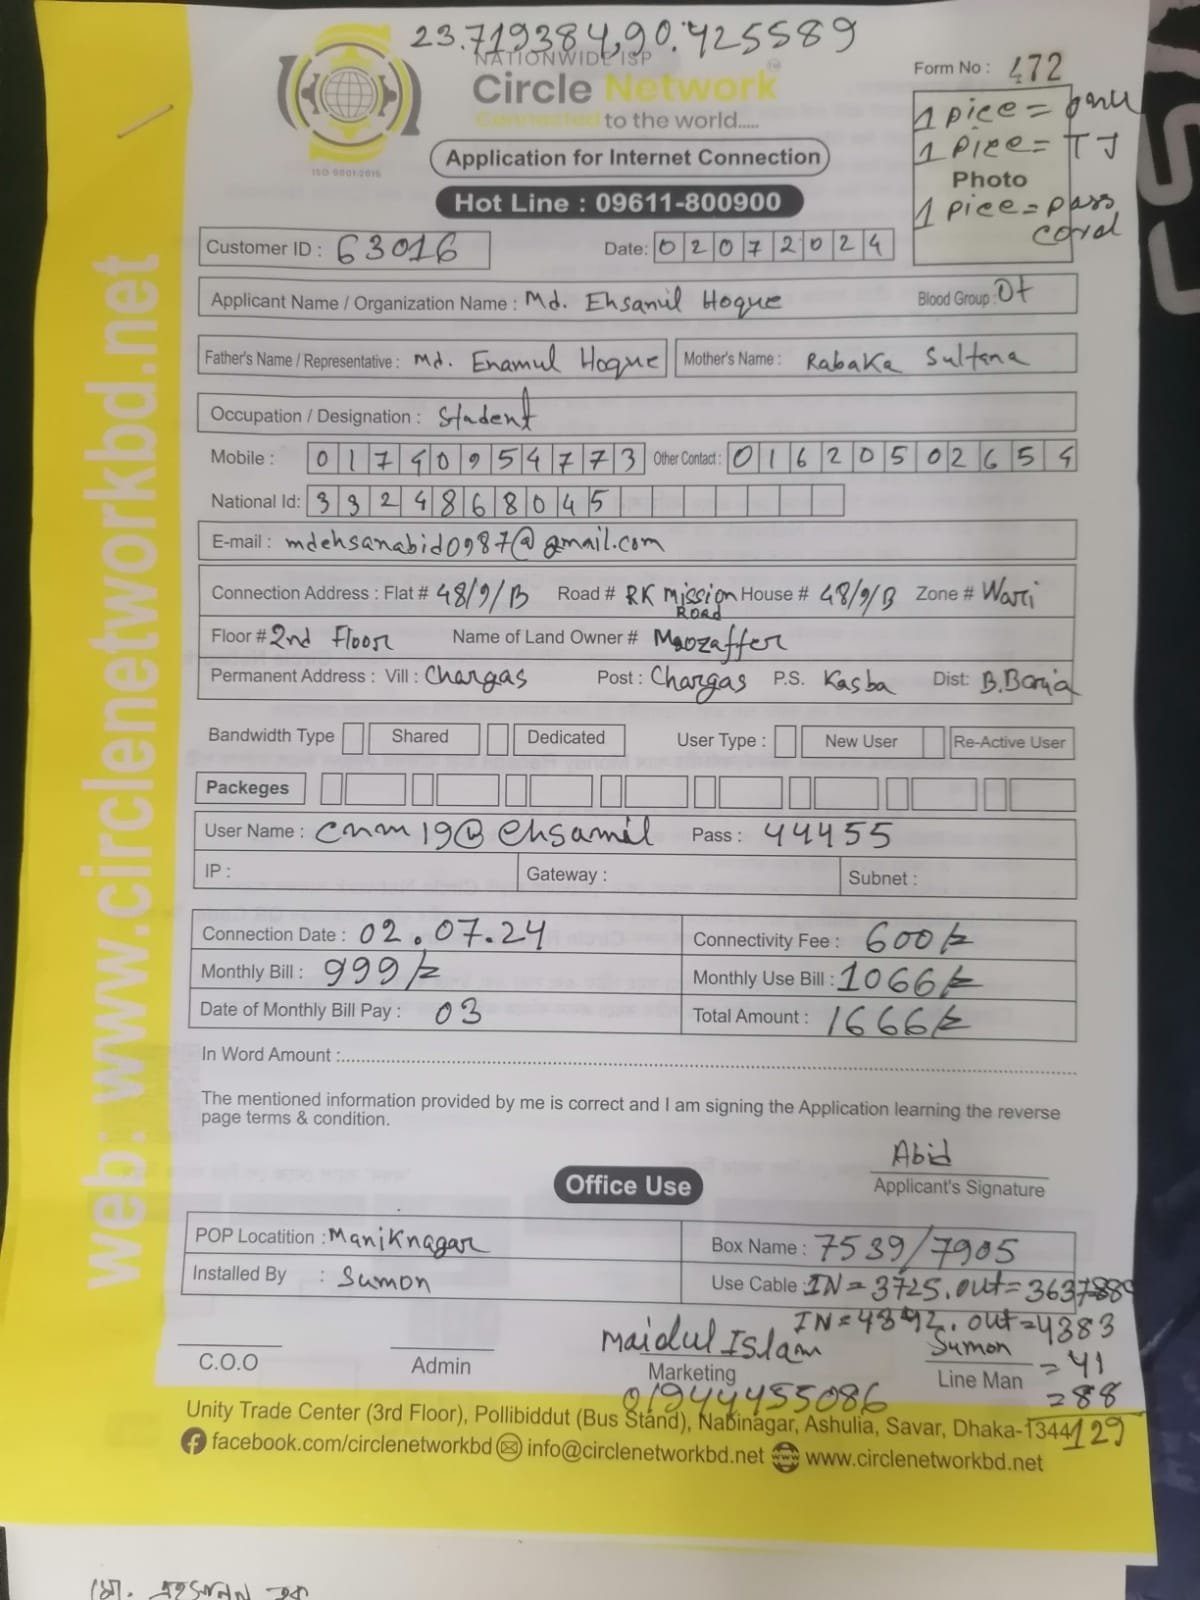 23.719384,90.425589
NATIONWIDE ISP
Circle Network
Connected to the world.....
ISO 9001:2015
Form No : 472
1 pice = onu
1 Picc= TJ
Photo
1 picc=pass
cord
Application for Internet Connection
Hot Line : 09611-800900
Customer ID : 63016 Date: 02072024
Applicant Name / Organization Name : Md. Ehsanul Hoque Blood Group : O+
Father's Name / Representative : Md. Enamul Hoque Mother's Name : Rabaka Sultana
Occupation / Designation : Student
Mobile : 01740954773 Other Contact : 01620502654
National Id: 3324868045
E-mail : mdehsanabid0987@gmail.com
Connection Address : Flat # 48/9/B Road # RK Mission Road House # 48/9/B Zone # Wari
Floor # 2nd Floor Name of Land Owner # Moozaffer
Permanent Address : Vill : Chargas Post : Chargas P.S. Kasba Dist: B.Baria
Bandwidth Type Shared Dedicated User Type : New User Re-Active User
Packeges
User Name : cnm19@ehsamil Pass : 44455
IP : Gateway : Subnet :
Connection Date : 02.07.24 Connectivity Fee : 600/=
Monthly Bill : 999/= Monthly Use Bill : 1066/=
Date of Monthly Bill Pay : 03 Total Amount : 1666/=
In Word Amount :
The mentioned information provided by me is correct and I am signing the Application learning the reverse
page terms & condition.
Abid
Applicant's Signature
Office Use
POP Locatition : Maniknagar Box Name : 7539/7905
Installed By : Sumon Use Cable : IN=3725. out=3637
IN=4342. out=4383
Maidul Islam Sumon =41
C.O.O Admin Marketing Line Man =88
01944455086
129
Unity Trade Center (3rd Floor), Pollibiddut (Bus Stand), Nabinagar, Ashulia, Savar, Dhaka-1344
facebook.com/circlenetworkbd info@circlenetworkbd.net www.circlenetworkbd.net
web: www.circlenetworkbd.net
মো. এহসানুল হক